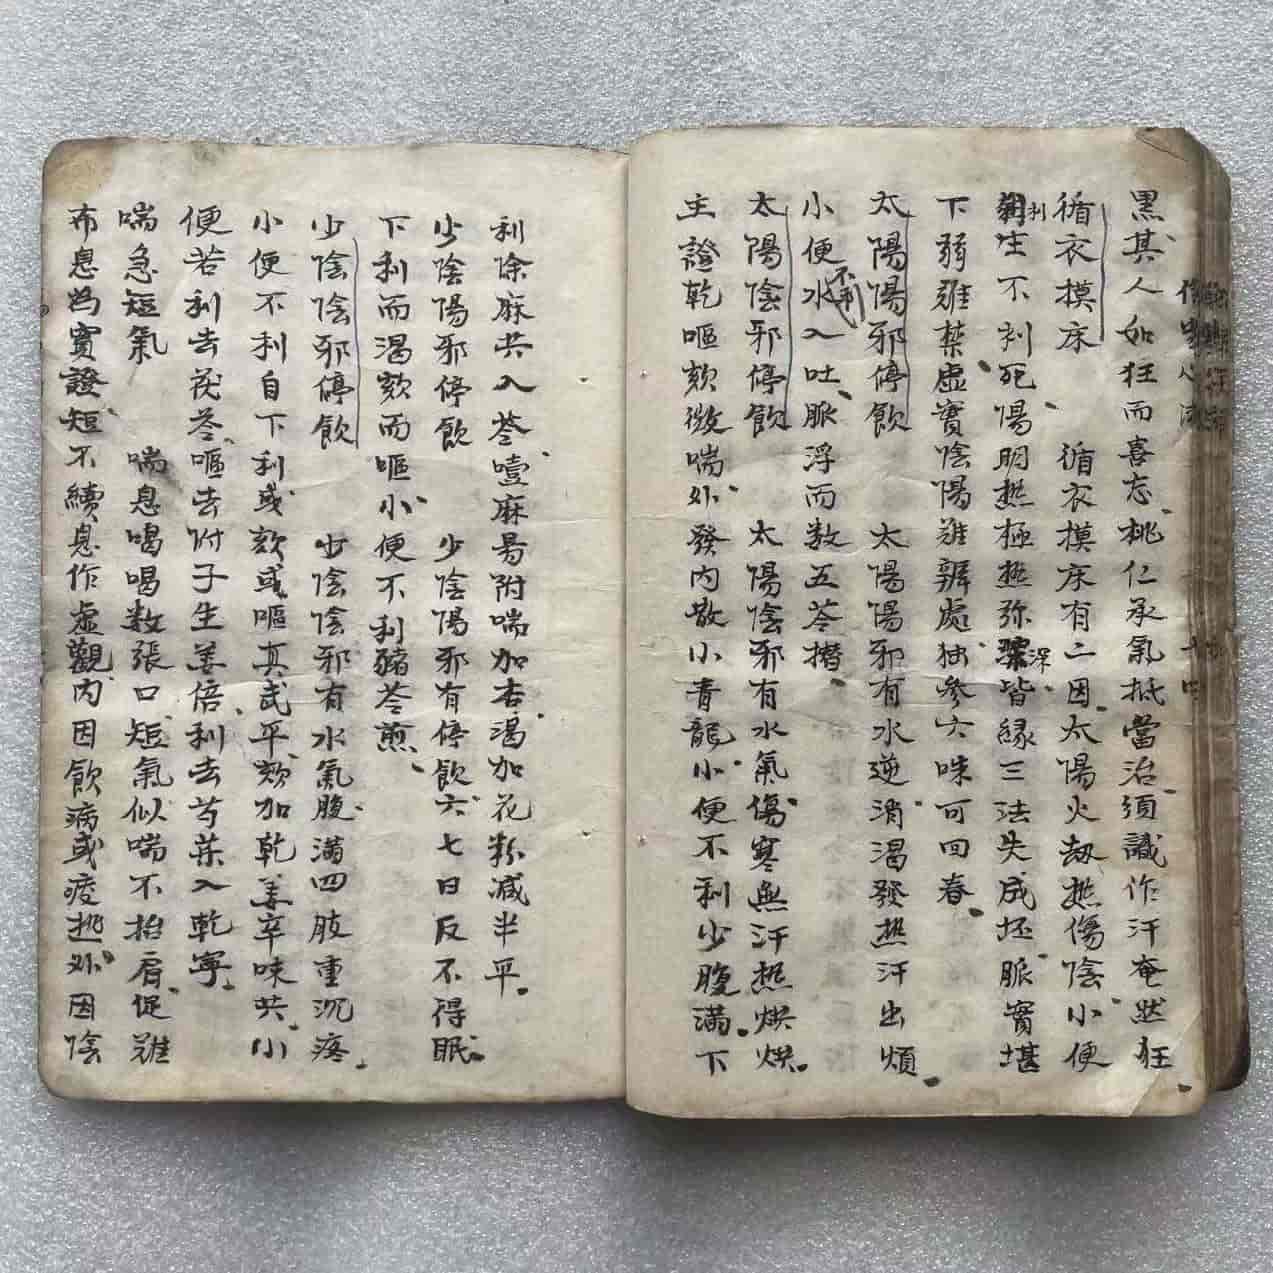 黑其人如狂而喜忘桃仁承氣抵當治須識作汗奄然狂
循衣摸床 循衣摸床有二因太陽火劫热傷陰小便
利生不利死陽明热極热弥深皆緣三法失成坯脈實堪
下弱难禁虛實陰陽难辨處独參六味可回春
太陽陽邪停飲 太陽陽邪有水逆消渴發热汗出煩
小便不利水入吐脈浮而数五苓撍
太陽陰邪停飲 太陽陰邪有水氣傷寒無汗热烘烘
主證乾嘔欬微喘外發内散小青龍小便不利少腹滿下
利除麻共入苓噎麻昜附喘加杏渴加花粉减半平
少陰陽邪停飲 少陰陽邪有停飲六七日反不得眠
下利而渴欬而嘔小便不利豬苓煎
少陰陰邪停飲 少陰陰邪有水氣腹滿四肢重沉疼
小便不利自下利或欬或嘔真武平欬加乾姜辛味共小
便若利去茯苓嘔去附子生姜倍利去芍葉入乾寧
喘急短氣 喘息喝喝数張口短氣似喘不抬肩促难
布息為實證短不續息作虛觀内因飲病或痰逃外因陰